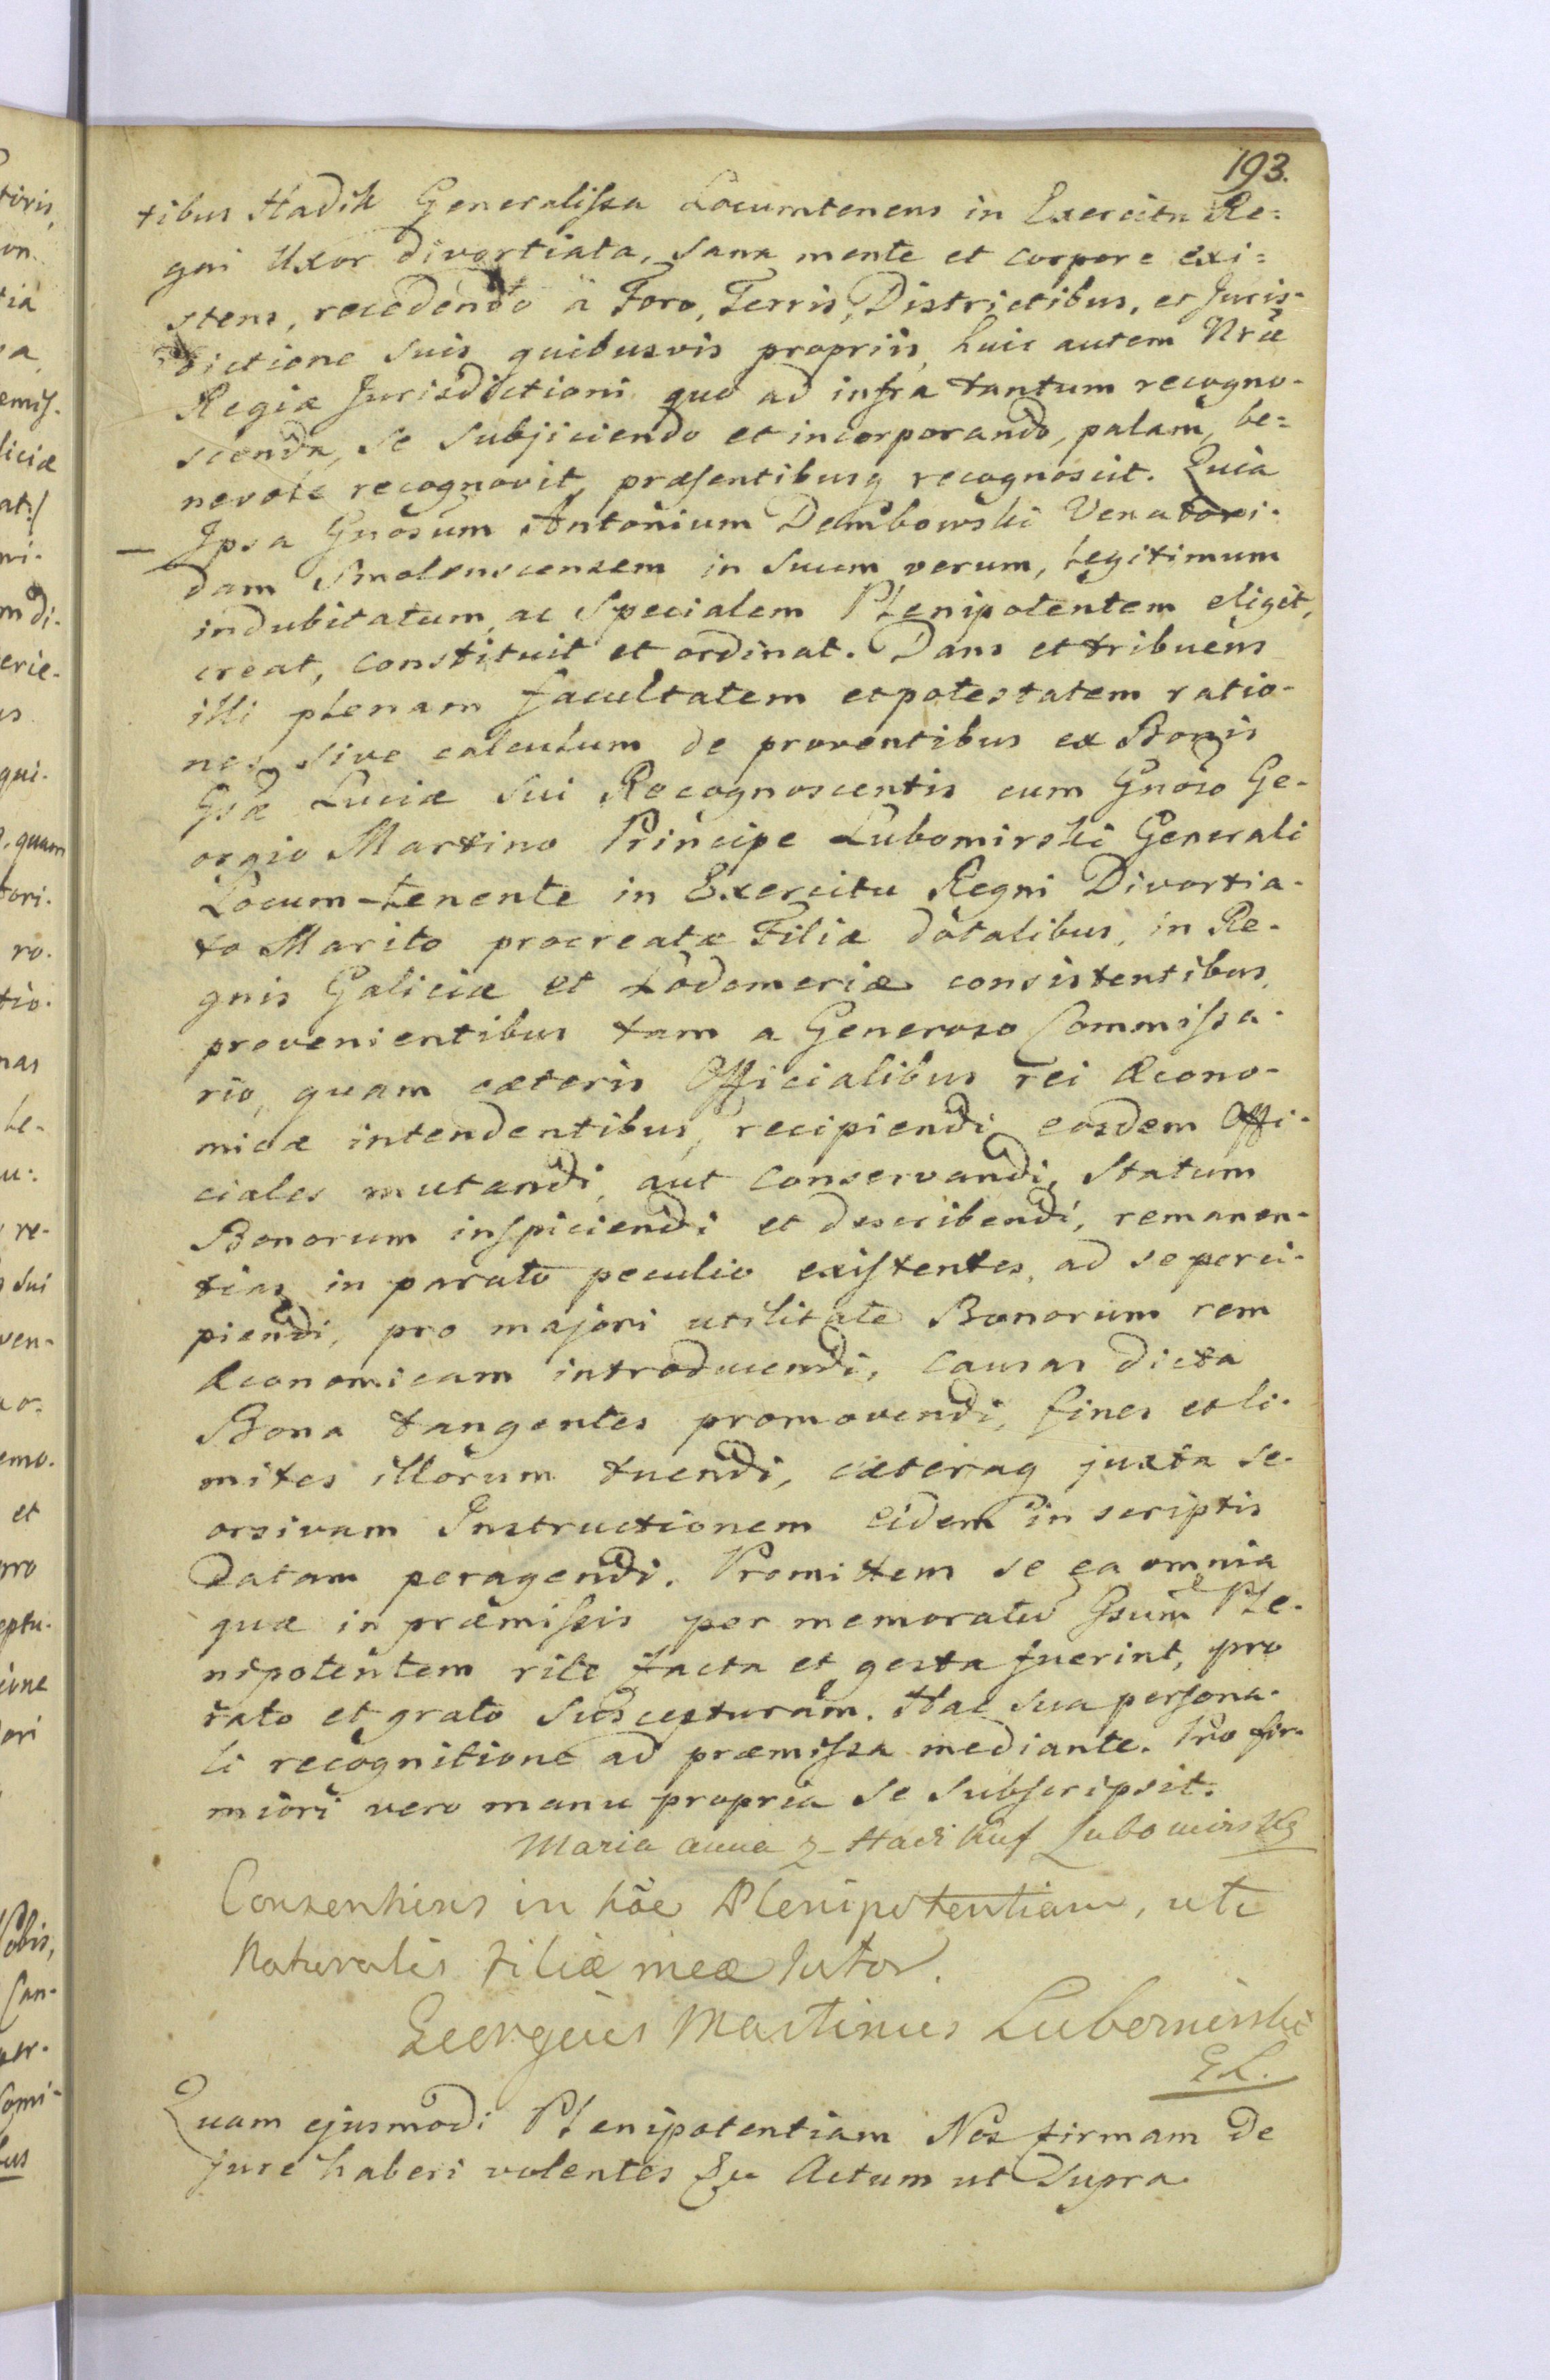 193.
tibus Hadik Generalissa Locumtenens in Exercitu Re=
gni Uxor divortiata, sana mente et corpore exi=
stens, recedendo à Foro, Terris, Districtibus, et Juris-
dictione suis quibusvis propriis, huic autem Nrae
Regiæ Jurisdictioni quo ad infra tantum recogno-
scenda, se subjiciendo et incorporando, palam, be=
nevole recognovit, præsentibusq recognoscit. Quia
Ipsa Gnosum Antonium Dembowski Venatori-
dam Smolenscensem in suum verum, Legitimum
indubitatum, ac Specialem Plenipotentem eligit,
creat, constituit et ordinat. Dans et tribuens
illi plenam facultatem et potestatem ratio-
nes sive calculum de proventibus ex Bonis
Gsæ Luciæ sui Recognoscentis cum Gnoso Ge-
orgio Martino Principe Lubomirski Generali
Locum-tenente in Exercitu Regni Divortia-
to Marito procreatæ Filiæ dotalibus, in Re-
gnis Galiciæ et Lodomeriæ consistentibus,
provenientibus tam a Generoso Commissa-
rio, quam cæteris Officialibus rei Æcono-
micæ intendentibus, recipiendi, eosdem Offi-
ciales mutandi, aut conservandi, Statum
Bonorum inspiciendi et describendi, remanen-
tias in parato peculio existentes, ad se perci-
piendi, pro majori utilitate Bonorum rem
Æconomicam introducendi, causas dicta
Bona tangentes promovendi, fines et li-
mites illorum tuendi, cæteraq juxta se-
orsivam Instructionem eidem in scriptis
Datam peragendi. Promittens se ea omnia
quæ in præmissis per memoratu Gsum Ple-
nipotentem rite facta et gesta fuerint, pro
rato et grato suscepturam. Hac sua persona-
li recognitione ad præmissa mediante. Pro fir-
miori vero manu propria se subscripsit.
Maria anna z Lubomirska
Consentiens in hõc Plenipotentiam, uti
Naturalis Filiæ meæ tutor.
Georgius Martinus Lubomirski
G L.
Quam ejusmodi Plenipotentiam Nos firmam de
jure haberi volentes Actum ut Supra.